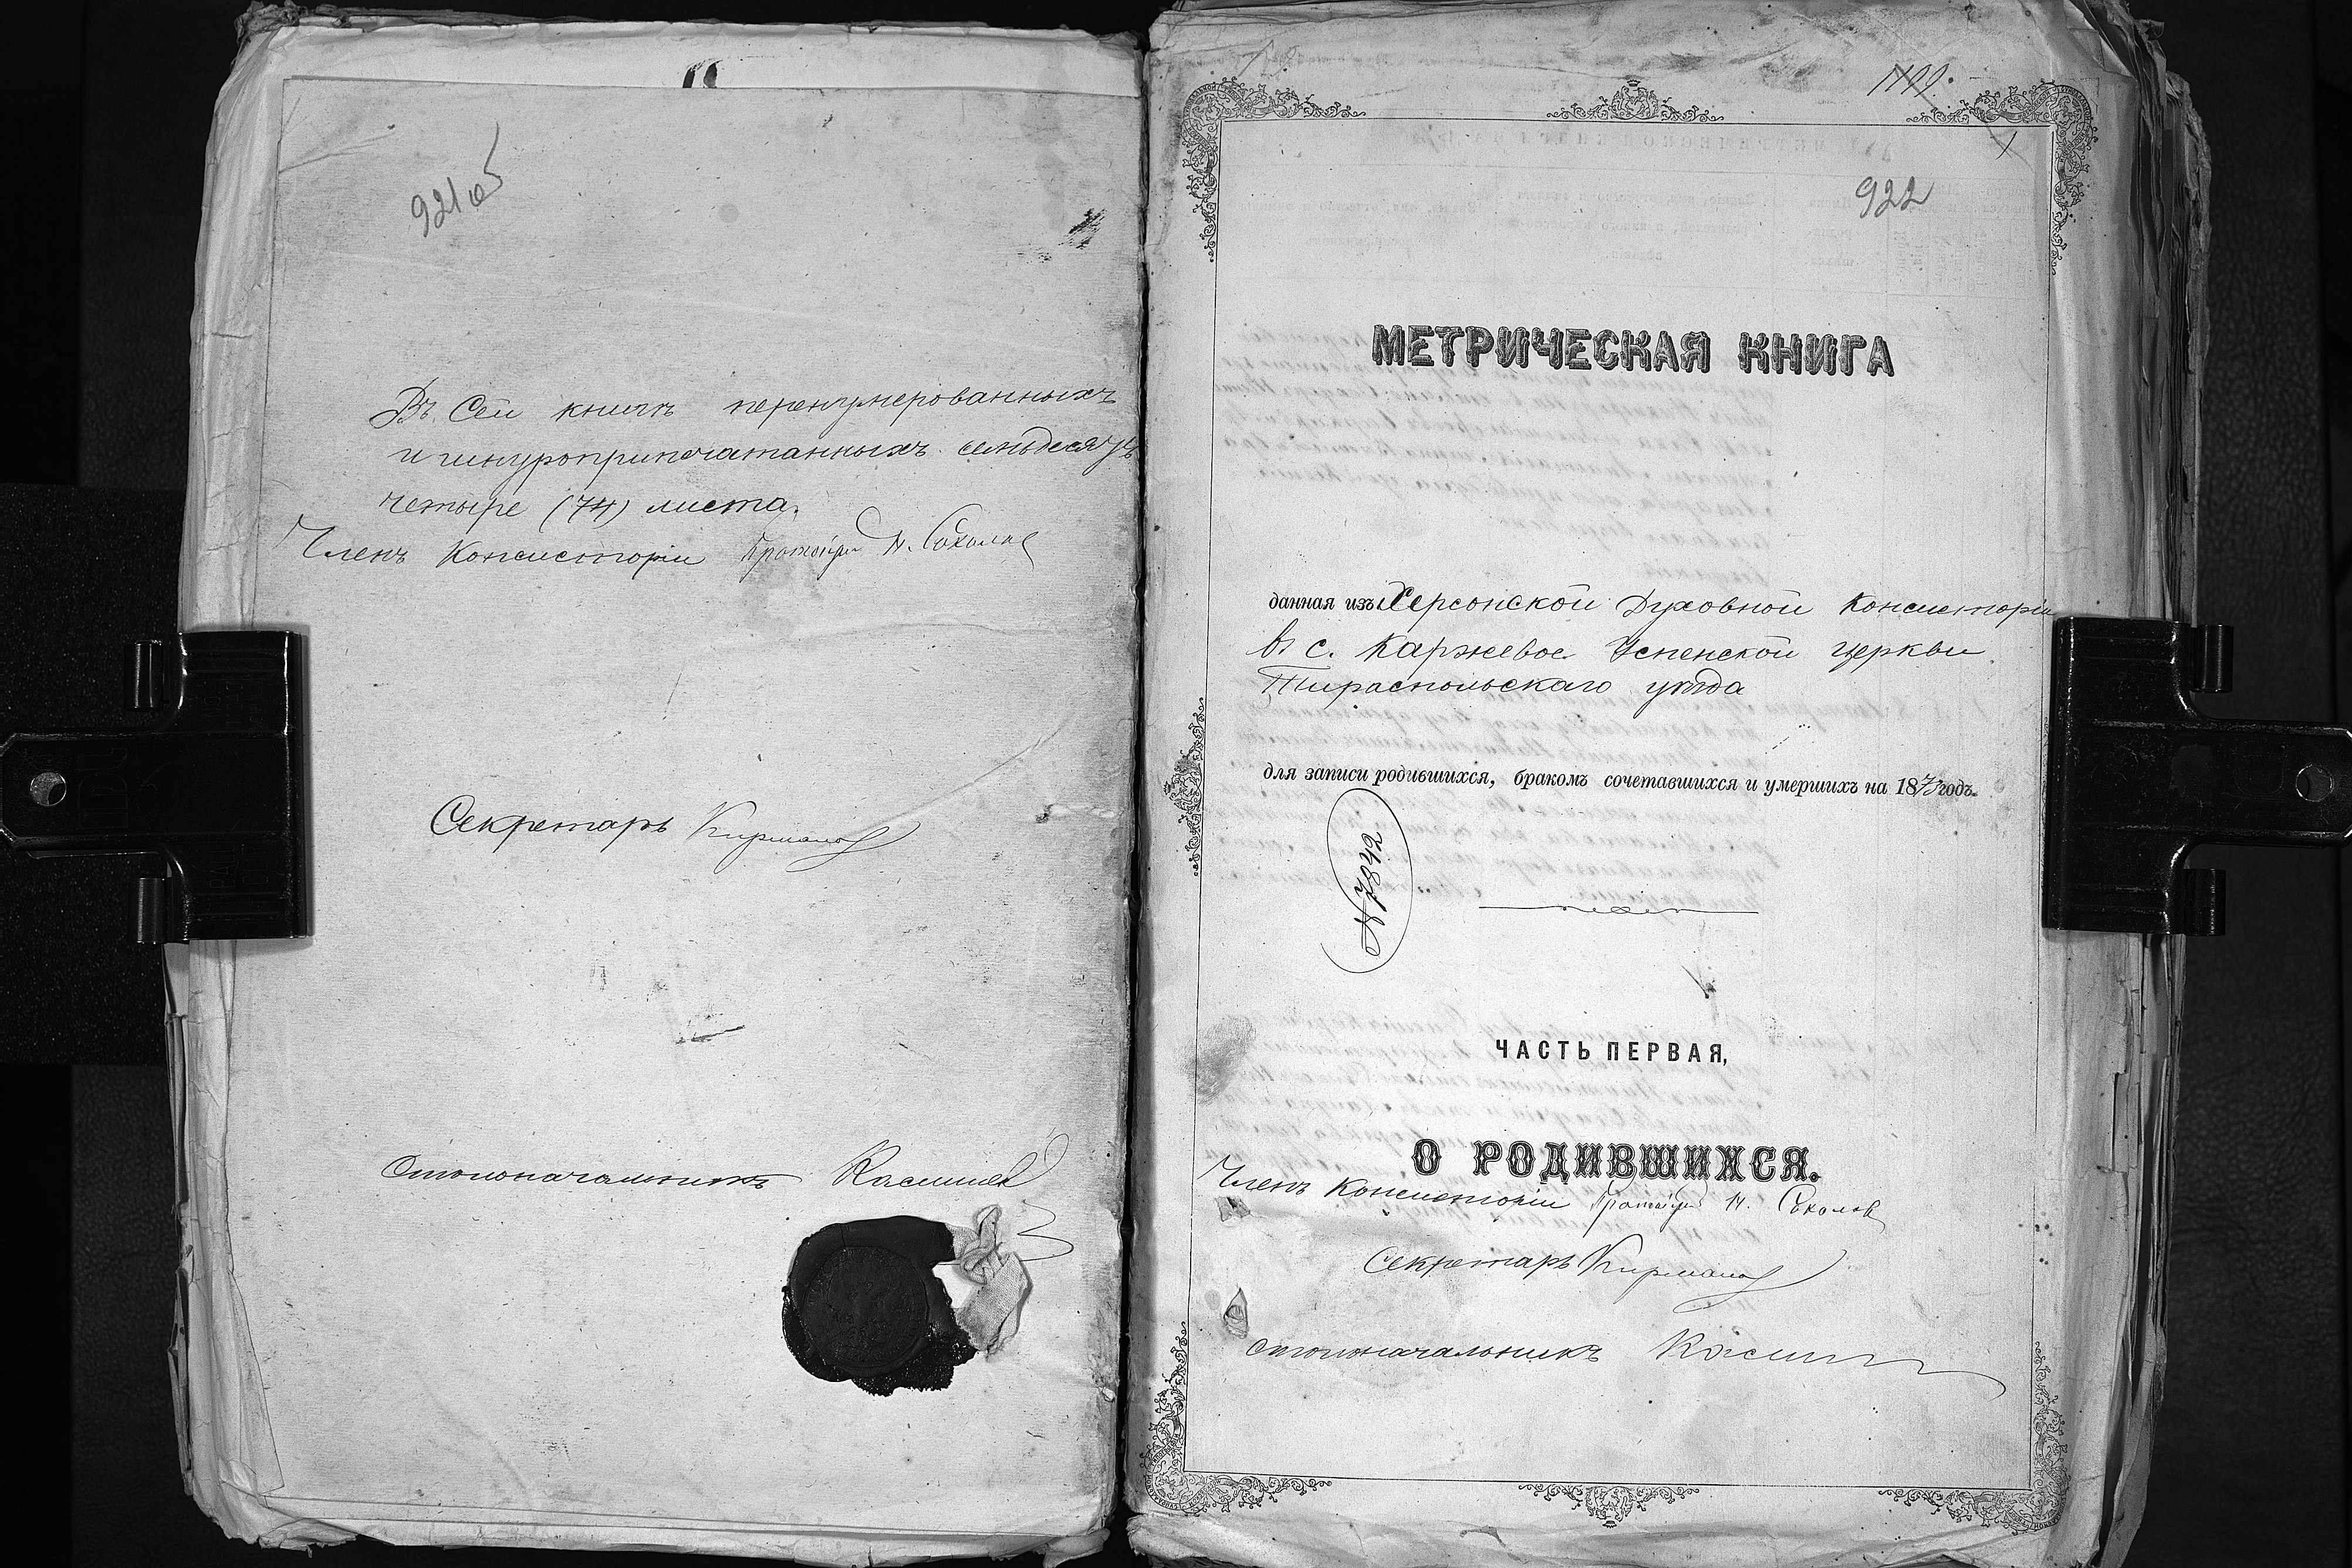 921 об
Въ сей книгѣ перенумерованныхъ
и шнуроприпечатанныхъ семьдесятъ
четыре (74) листа.
Членъ Консисторіи Протоіерей Н. Соколов
Секретарь
Столоначальникъ
922
МЕТРИЧЕСКАЯ КНИГА
данная изъ Херсонской Духовной Консисторіи
въ с. Каржевое Успенской церкви
Тираспольскаго уѣзда
для записи родившихся, бракомъ сочетавшихся и умершихъ на 1873 годъ.
№ 7842
ЧАСТЬ ПЕРВАЯ,
О РОДИВШИХСЯ.
Членъ Консисторіи Протоіерей Н. Соколов
Секретарь
Столоначальникъ